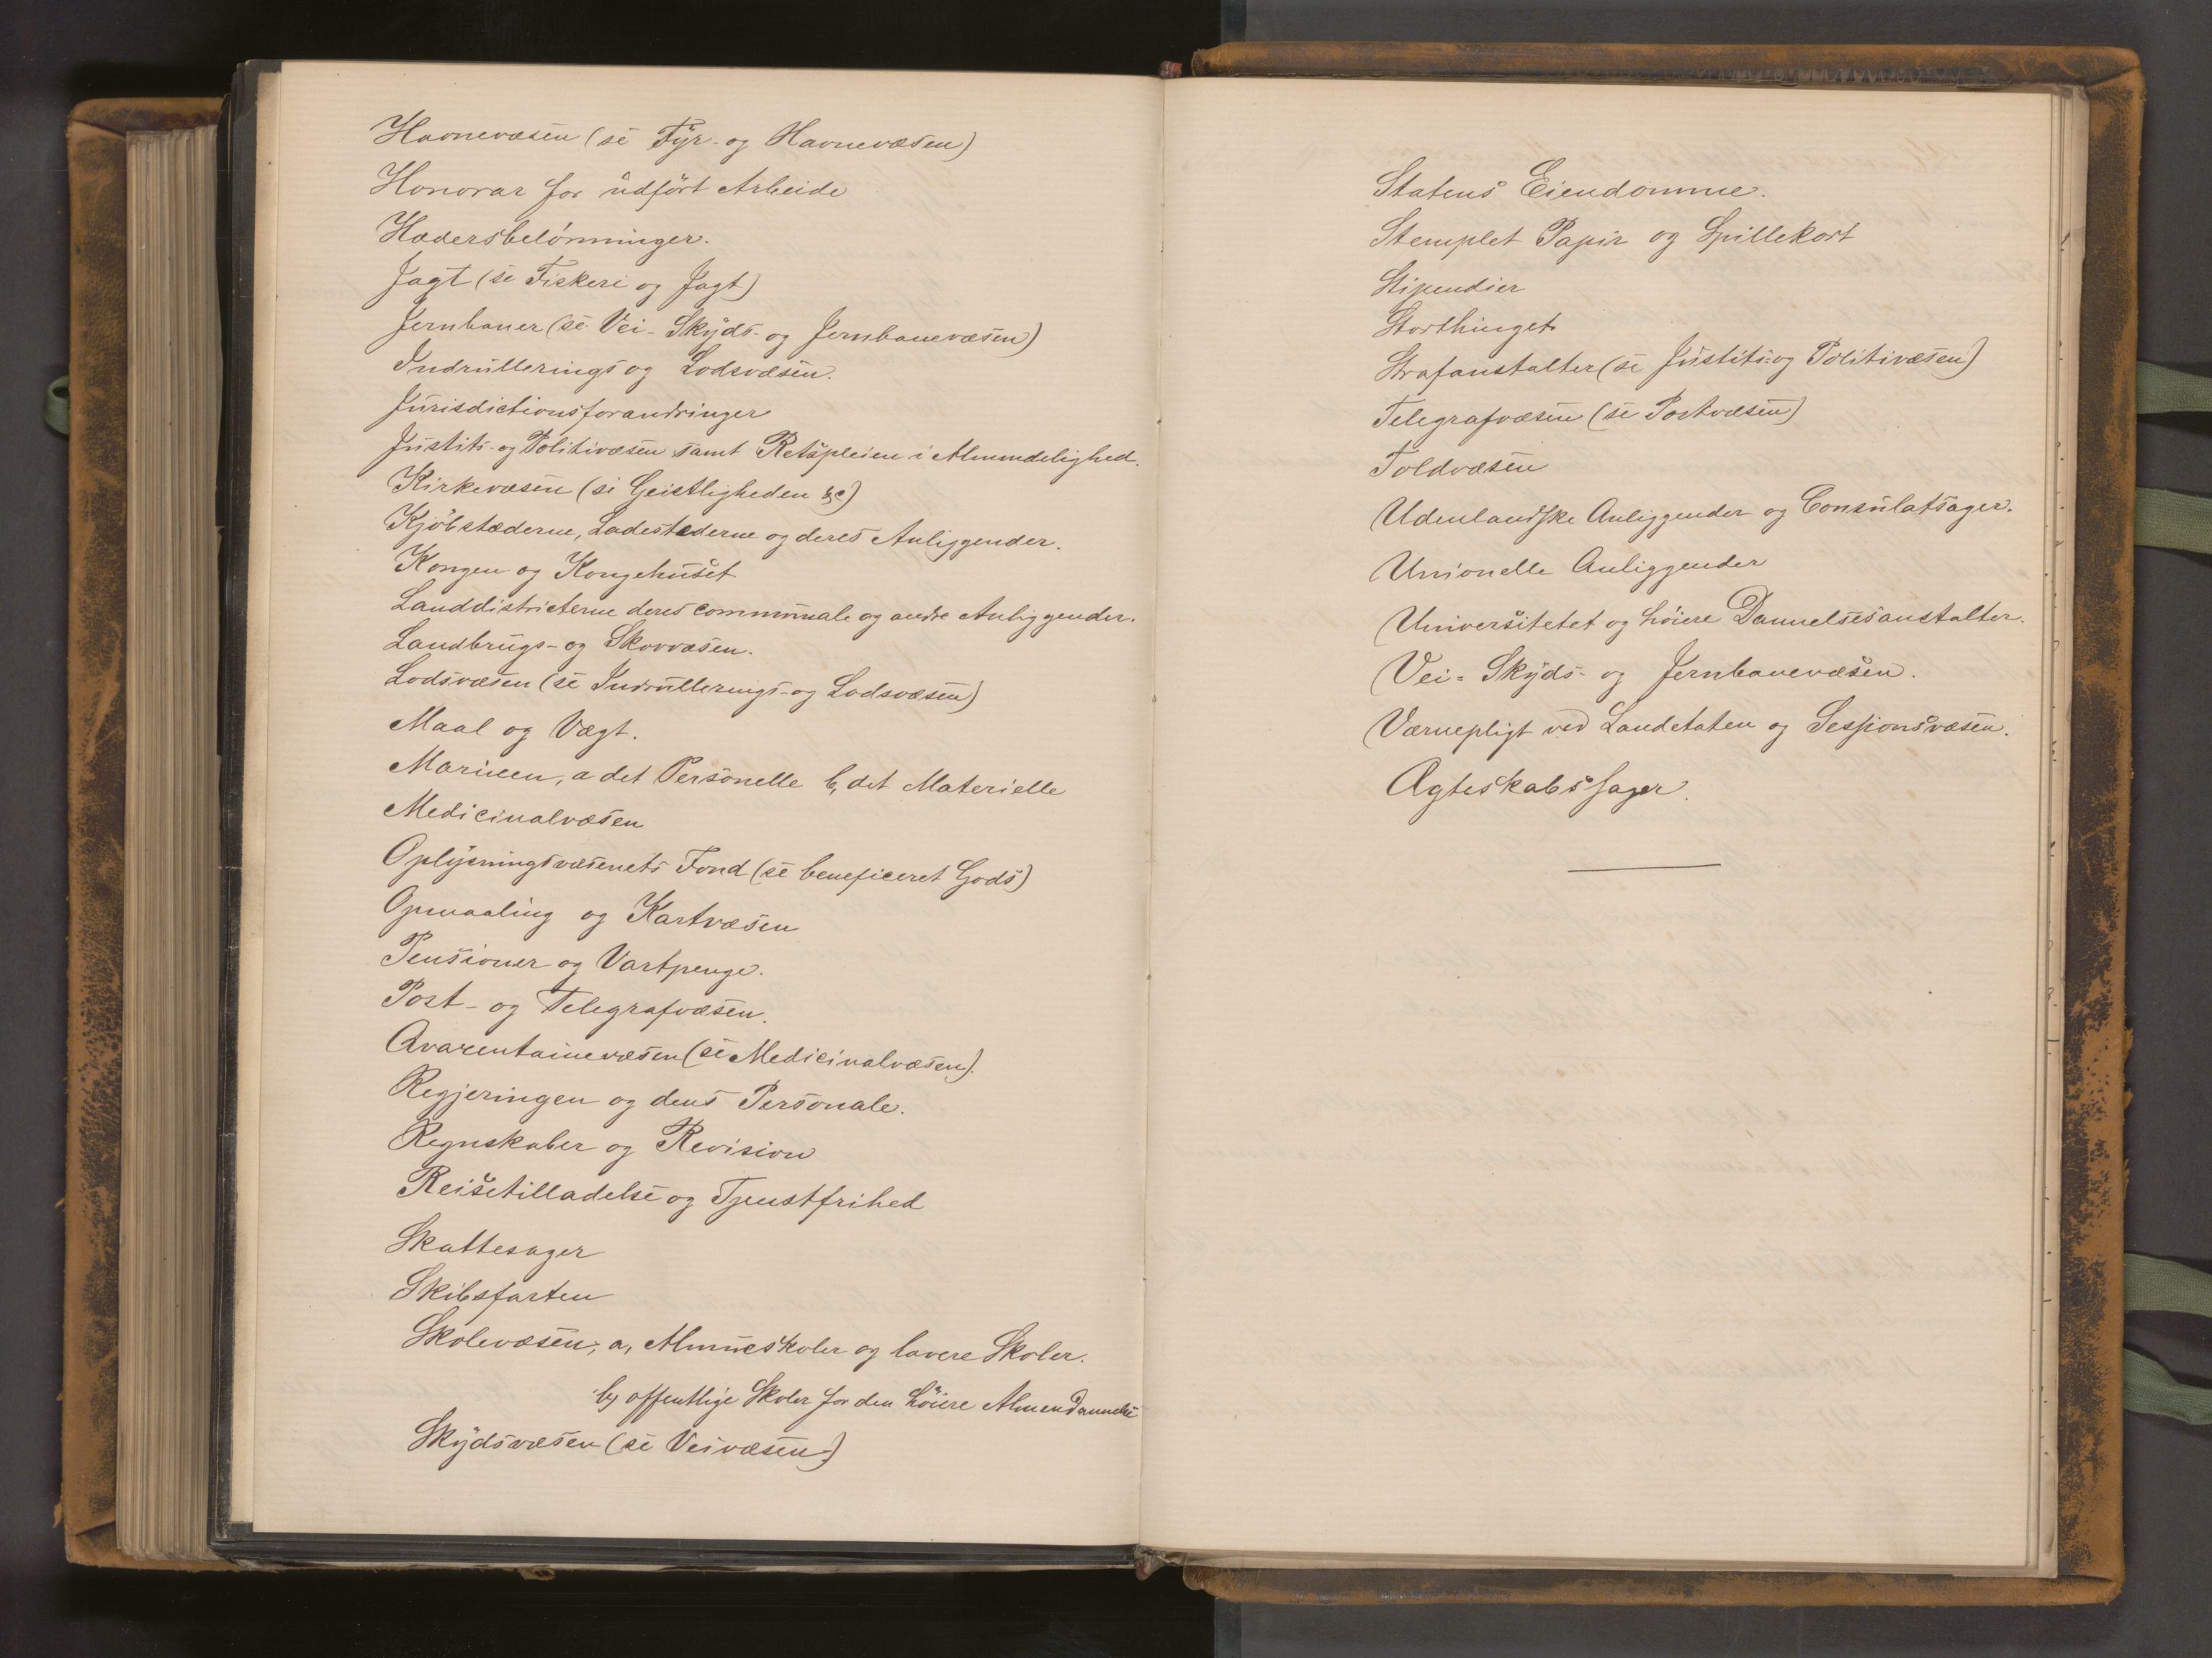 Havnevæsen (se Fyr- og Havnevæsen)
Honorar for udført Arbeide
Hædersbelønninger.
Jagt (se Fiskeri og Jagt)
Jernbaner (se Vei- Skyds- og Jernbanevæsen)
Indrullerings og Lodsvæsen.
Jurisdictionsforandringer
Justits- og Politivæsen samt Retspleien i Almindelighed.
Kirkevæsen (se Geistligheden &c)
Kjøbstæderne, Ladestederne og deres Anliggender.
Kongen og Kongehuset
Landdistricterne deres communale og andre Anliggender.
Landbrugs- og Skovvæsen.
Lodsvæsen (se Indrullerings- og Lodsvæsen)
Maal og Vægt.
Marinen, a det Personelle b, det Materielle
Medicinalvæsen
Oplysningsvæsenets Fond (se beneficeret Gods)
Opmaaling og Kartvæsen
Pensioner og Vartpenge.
Post- og Telegrafvæsen.
Qvarentainevæsen (se Medicinalvæsen).
Regjeringen og dens Personale.
Regnskaber og Revision
Reisetilladelse og Tjenstfrihed
Skattesager
Skibsfarten
Skolevæsen, a, Almueskoler og lavere Skoler.
b, offentlige Skoler for den høiere Almendannelse
Skydsvæsen (se Veivæsen)
Statens Eiendomme.
Stemplet Papir og Spillekort
Stipendier
Storthinget
Strafanstalter (se Justits- og Politivæsen)
Telegrafvæsen (se Postvæsen)
Toldvæsen
Udenlandske Anliggender og Consulatsager.
Unionelle Anliggender
Universitetet og høiere Dannelsesanstalter.
Vei- Skyds- og Jernbanevæsen.
Værnepligt ved Landetaten og Sessionsvæsen.
Ægteskabssager.